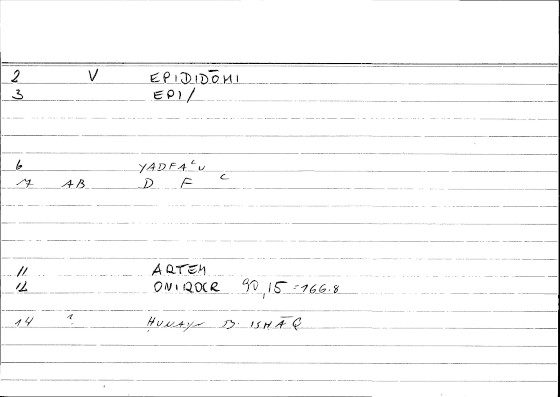 2 V EPIDIDŌMI
3 EPI/
6 YADFAʿU
7 AB D F ʿ
11 ARTEM
12 ONIROCR 90,15 = 166.8
14 ? HUNAYN B. ISHĀQ